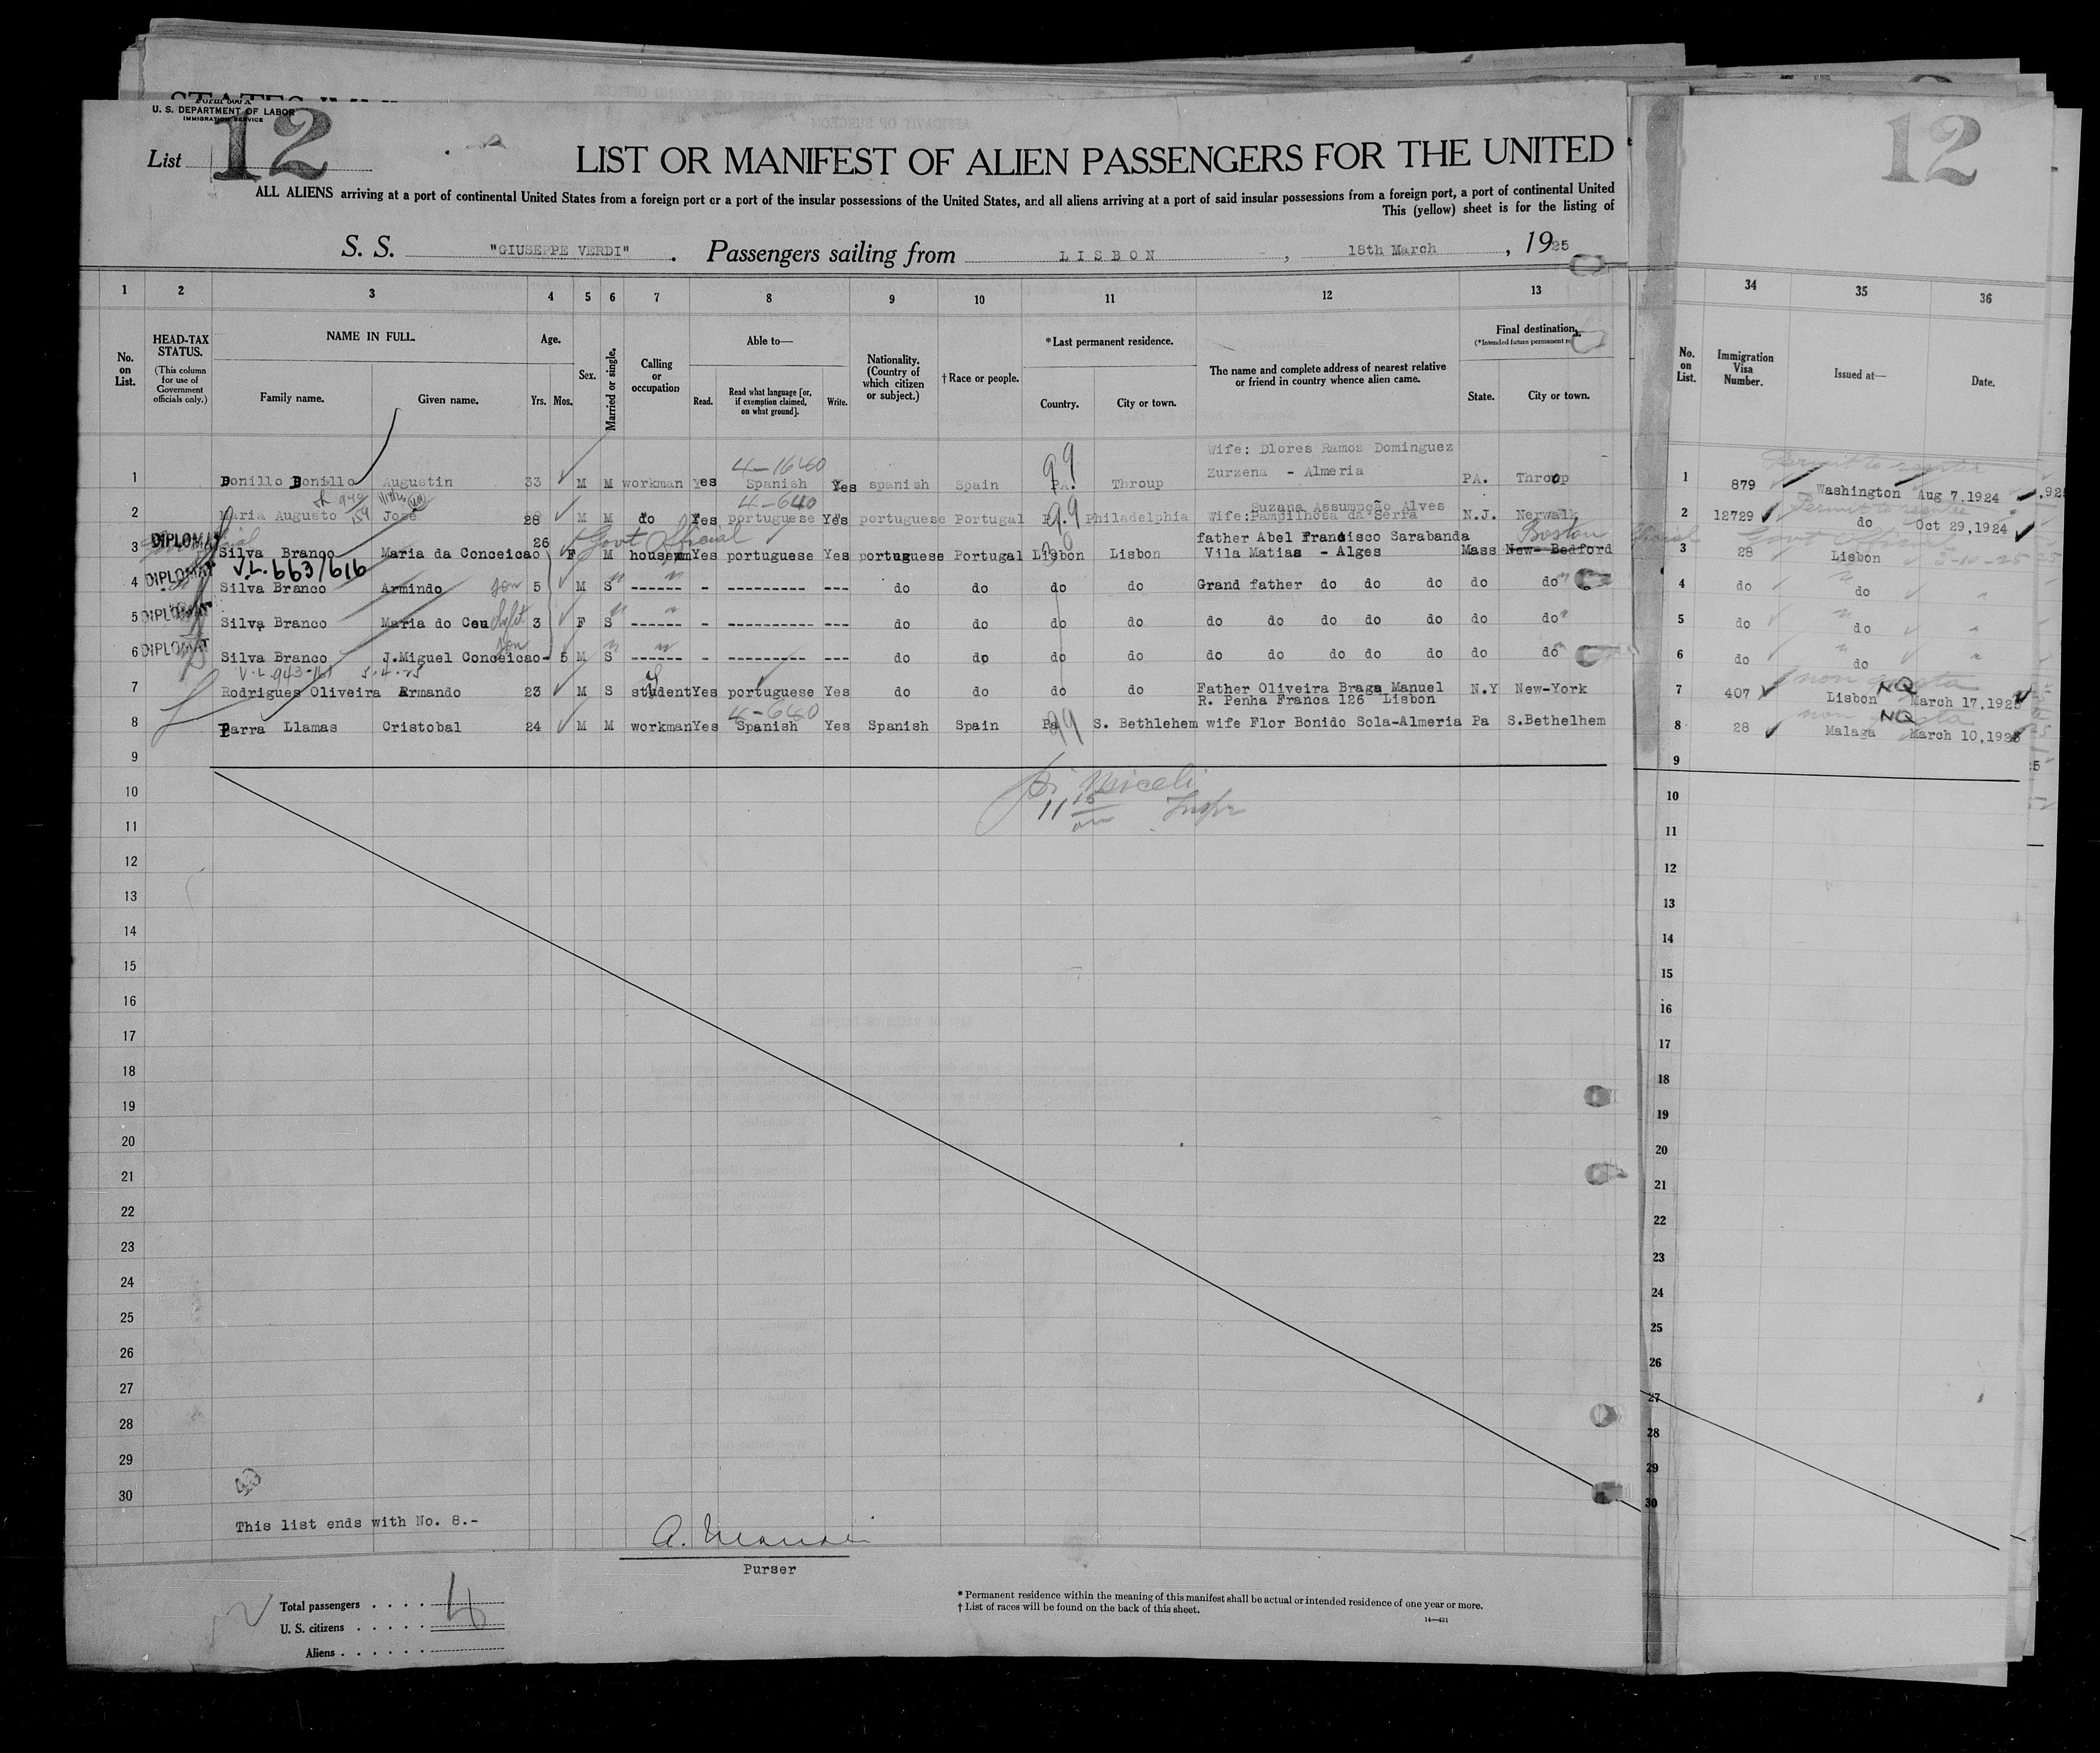 Form 500 A
U. S. DEPARTMENT OF LABOR
IMMIGRATION SERVICE
List 12
12
LIST OR MANIFEST OF ALIEN PASSENGERS FOR THE UNITED
ALL ALIENS arriving at a port of continental United States from a foreign port or a port of the insular possessions of the United States, and all aliens arriving at a port of said insular possessions from a foreign port, a port of continental United
This (yellow) sheet is for the listing of
S. S. "GIUSEPPE VERDI" . Passengers sailing from LISBON , 18th March , 1925
1 2 3 4 5 6 7 8 9 10 11 12 13 34 35 36
No. on List.
HEAD-TAX STATUS.
(This column for use of Government officials only.)
NAME IN FULL.
Family name. Given name.
Age.
Yrs. Mos.
Sex.
Married or single.
Calling or occupation
Able to—
Read. Read what language [or, if exemption claimed, on what ground]. Write.
Nationality. (Country of which citizen or subject.)
† Race or people.
* Last permanent residence.
Country. City or town.
The name and complete address of nearest relative or friend in country whence alien came.
Final destination.
(*Intended future permanent re
State. City or town.
No. on List.
Immigration Visa Number.
Issued at—
Date.
4-1640
99
Wife: Dlores Ramos Dominguez
Zurzena - Almeria
Permit to reenter
1 Bonillo Bonillo Augustin 33 M M workman Yes Spanish Yes spanish Spain PA. Throup PA. Throop 1 879 Washington Aug 7,1924
4-640
99
Suzana Assumpção Alves
Permit to reenter
2 Maria Augusto José 28 M M do Yes portuguese Yes portuguese Portugal Philadelphia Wife:Pampilhosa da Serra N.J. Nerwalk 2 12729 do Oct 29,1924
DIPLOMAT
Govt Official
father Abel Francisco Sarabanda
Boston
3 Silva Branco Maria da Conceicao 26 F M Yes portuguese Yes portuguese Portugal Lisbon Lisbon Vila Matias - Alges Mass New-Bedford 3 28 Lisbon
V.L. 663/616
DIPLOMAT
4 Silva Branco Armindo son 5 M S ------ - ---------- --- do do do do Grand father do do do do do 4 do do
DIPLOMAT
5 Silva Branco Maria do Ceu 3 F S ------ - ---------- --- do do do do do do do do do do do 5 do do
DIPLOMAT
son
6 Silva Branco J.Miguel Conceicao- 5 M S ------ - ---------- --- do do do do do do do do do do do 6 do do
V.L. 943-161 5.4.25
7 Rodrigues Oliveira Armando 23 M S student Yes portuguese Yes do do do do Father Oliveira Braga Manuel N.Y New-York 7 407 Lisbon NQ March 17,1925
R. Penha Franca 126 Lisbon
non quota
4-640
8 Parra Llamas Cristobal 24 M M workman Yes Spanish Yes Spanish Spain Pa S. Bethlehem wife Flor Bonido Sola-Almeria Pa S.Bethelhem 8 28 Malaga NQ March 10,1925
9 9
10 10
11 11
12 12
13 13
14 14
15 15
16 16
17 17
18 18
19 19
20 20
21 21
22 22
23 23
24 24
25 25
26 26
27 27
28 28
29 29
30 30
This list ends with No. 8.-
Purser
Total passengers . . . .
U. S. citizens . . . . .
Aliens . . . . . .
* Permanent residence within the meaning of this manifest shall be actual or intended residence of one year or more.
† List of races will be found on the back of this sheet.
14—431